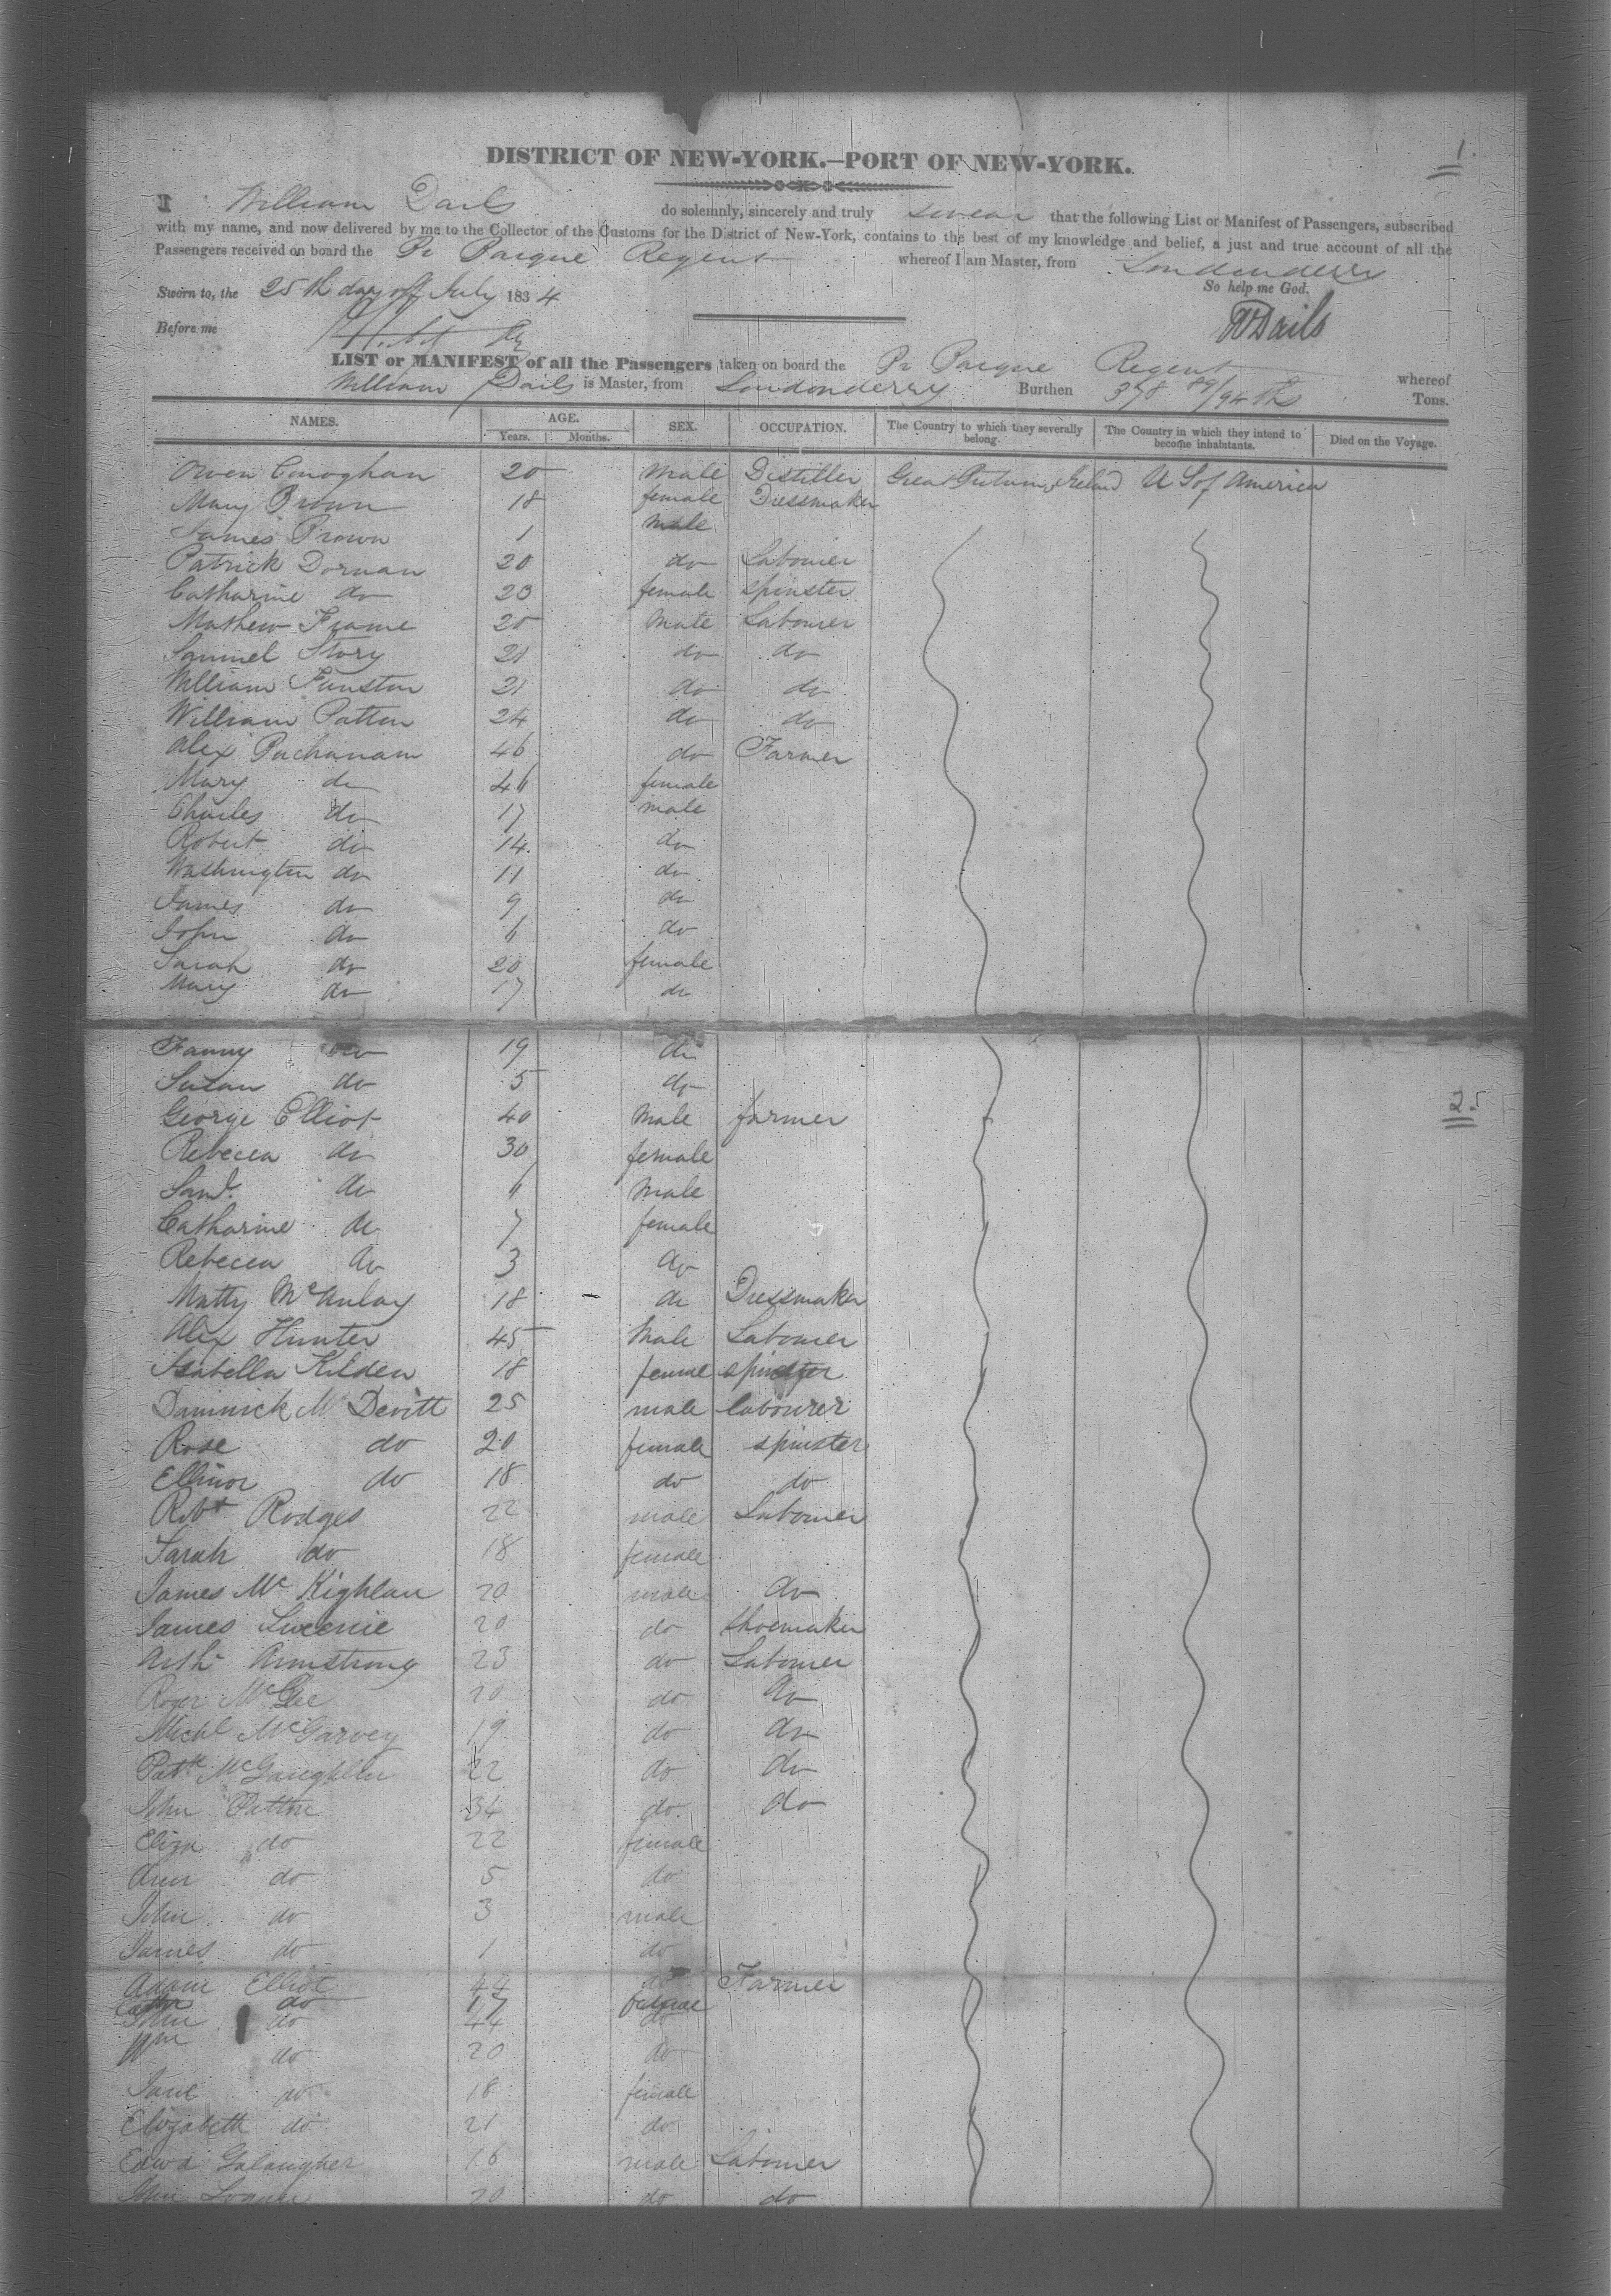 1.
DISTRICT OF NEW-YORK.—PORT OF NEW-YORK.
I William Dails do solemnly, sincerely and truly swear that the following List or Manifest of Passengers, subscribed
with my name, and now delivered by me to the Collector of the Customs for the District of New-York, contains to the best of my knowledge and belief, a just and true account of all the
Passengers received on board the Br Barque Regent whereof I am Master, from Londonderry
So help me God.
Sworn to, the 25th day of July 1834
WDails
Before me
LIST or MANIFEST of all the Passengers taken on board the Br Barque Regent whereof
William Dails is Master, from Londonderry Burthen 378 89/94ths Tons.
NAMES. AGE. Years. Months. SEX. OCCUPATION. The Country to which they severally belong. The Country in which they intend to become inhabitants. Died on the Voyage.
Owen Conoghan 20 Male Distiller Great Britain, Ireland U S of America
Mary Brown 18 female Dressmaker
James Brown 1 male
Patrick Dornan 20 do Labourer
Catharine do 20 female Spinster
Mathew Frame 20 Male Labourer
Samuel Story 21 do do
William Funston 21 do do
William Patton 24 do do
Alex Buchanan 46 do Farmer
Mary do 46 female
Charles do 17 male
Robert do 14 do
Washington do 11 do
James do 9 do
John do 6 do
Sarah do 20 female
Mary do 17 do
Fanny do 19 do
Susan do 5 do
George Elliot 40 Male farmer
25
Rebecca do 30 female
Saml. do 6 Male
Catharine do 7 female
Rebecca do 3 do
Matty McAulay 18 do Dressmaker
Alex Hunter 45 Male Labourer
Isabella Kilden 18 female spinster
Daminick Mc Devitt 25 male labourer
Rose do 20 female spinster
Ellinor do 18 do do
Robt Rodges 22 male Labourer
Sarah do 18 female
James Mc Kighlan 20 male do
James Sweenie 20 do Shoemaker
Arthr Armstrong 23 do Labourer
Roger McGee 20 do do
Michl McGarvey 19 do do
Patk McGaughlin 22 do do
John Patton 34 do do
Eliza do 22 female
Ann do 5 do
John do 3 male
James do 1 do
Adam Elliot 44 do Farmer
do 17 female
John do 44 do
Wm do 20 do
Jane do 18 female
Elizabeth do 21 do
Edwd Galaugher 16 male Labourer
John Logue 20 do do